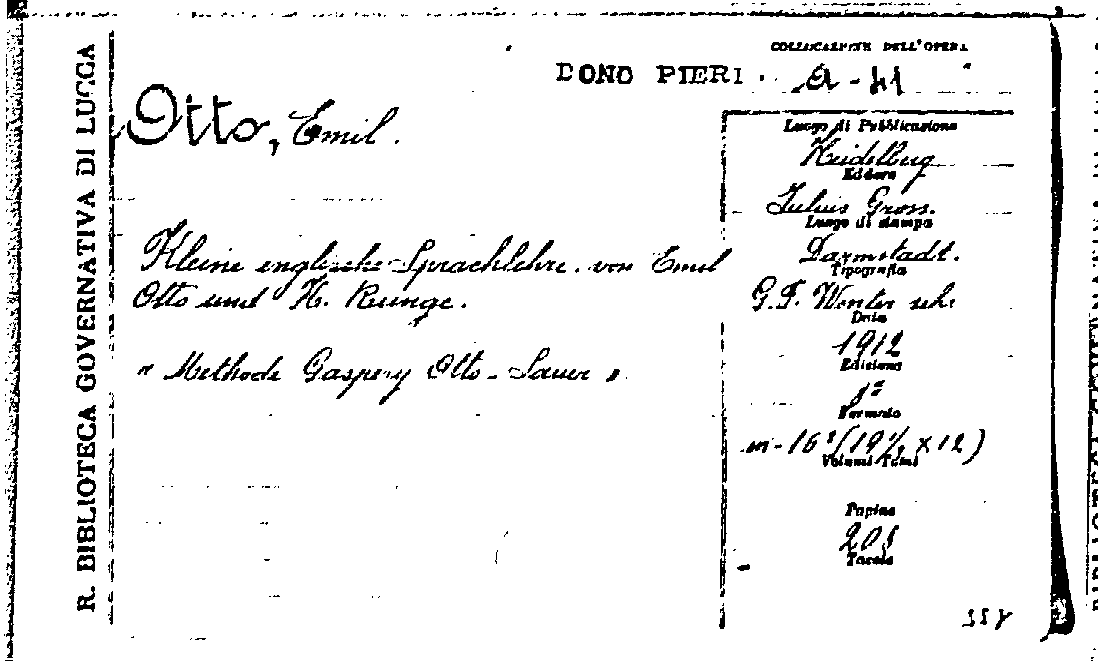 R. BIBLIOTECA GOVERNATIVA DI LUCCA
COLLOCAZIONE DELL'OPERA
DONO PIERI.
Otto, Emil.
Kleine englische Sprachlehre. von Emil
Otto und H. Runge.
" Methode Gaspey Otto-Sauer "
Luogo di Pubblicazione
Heidelberg
Editore
Julius Groos.
Luogo di stampa
Darmstadt.
Tipografia
G. F. Winter
Data
1912
Edizione
Formato
in-16° (19½ x 12)
Volumi Tomi
Pagine
Tavole